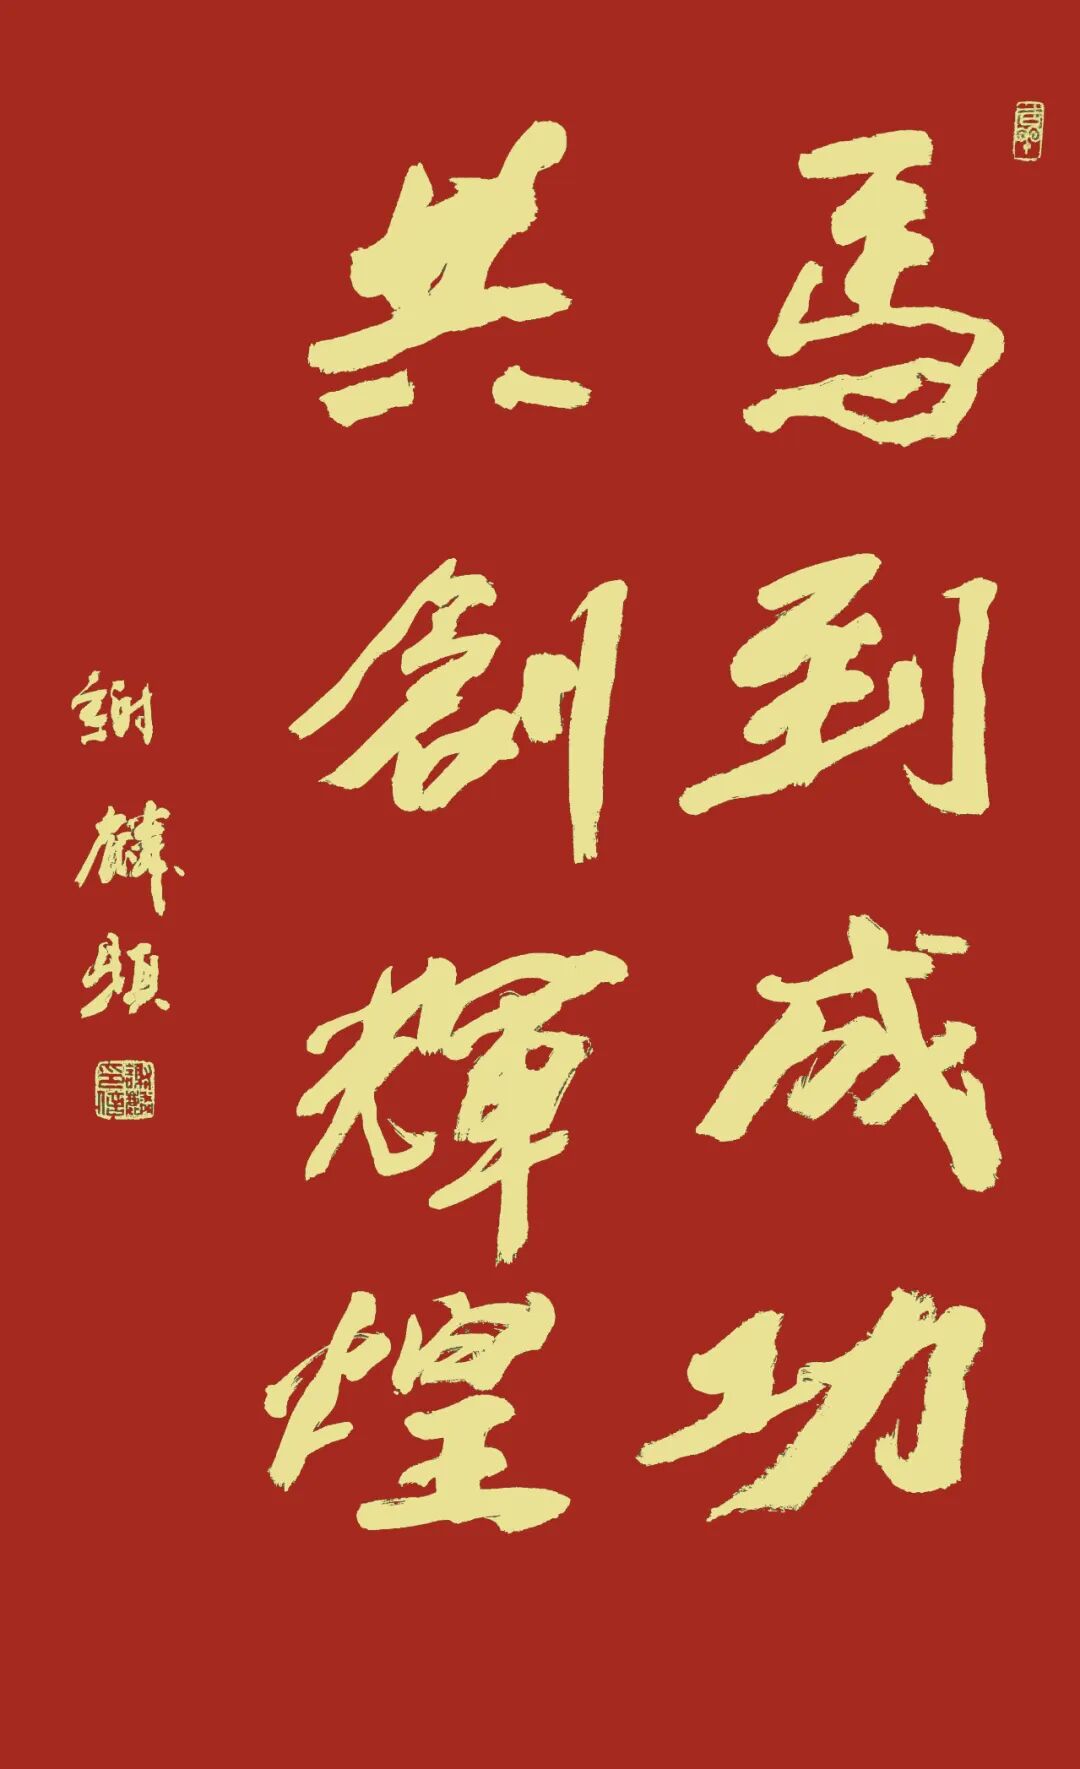 馬到成功
共創輝煌
謝麟